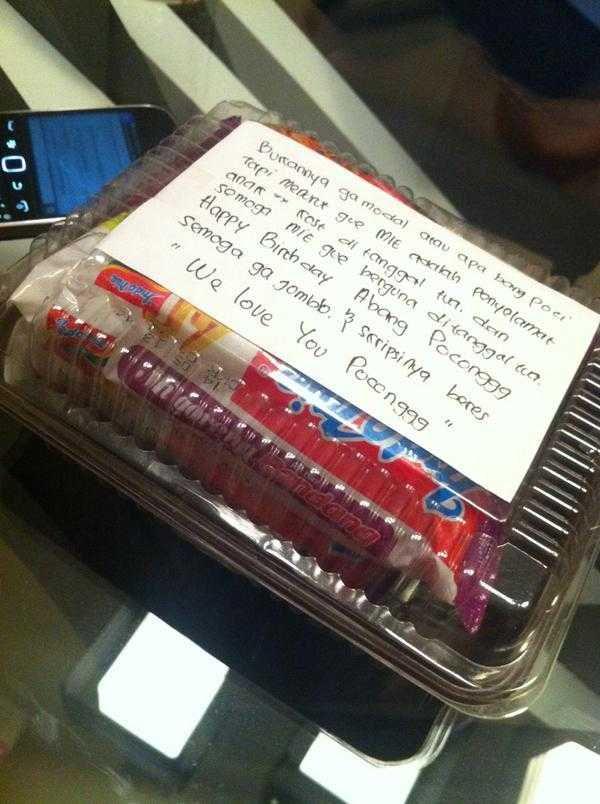 Bukannya ga modal atau apa bang poci
Tapi menrut gue MIE adalah penyelamat
anak" kost di tanggal tua, dan
semoga MIE gue berguna ditanggal tua.
Happy Birthday Abang Poconggg
semoga ga jomblo. & skripsinya beres
" We love You Poconggg "
Indomie
Rendang